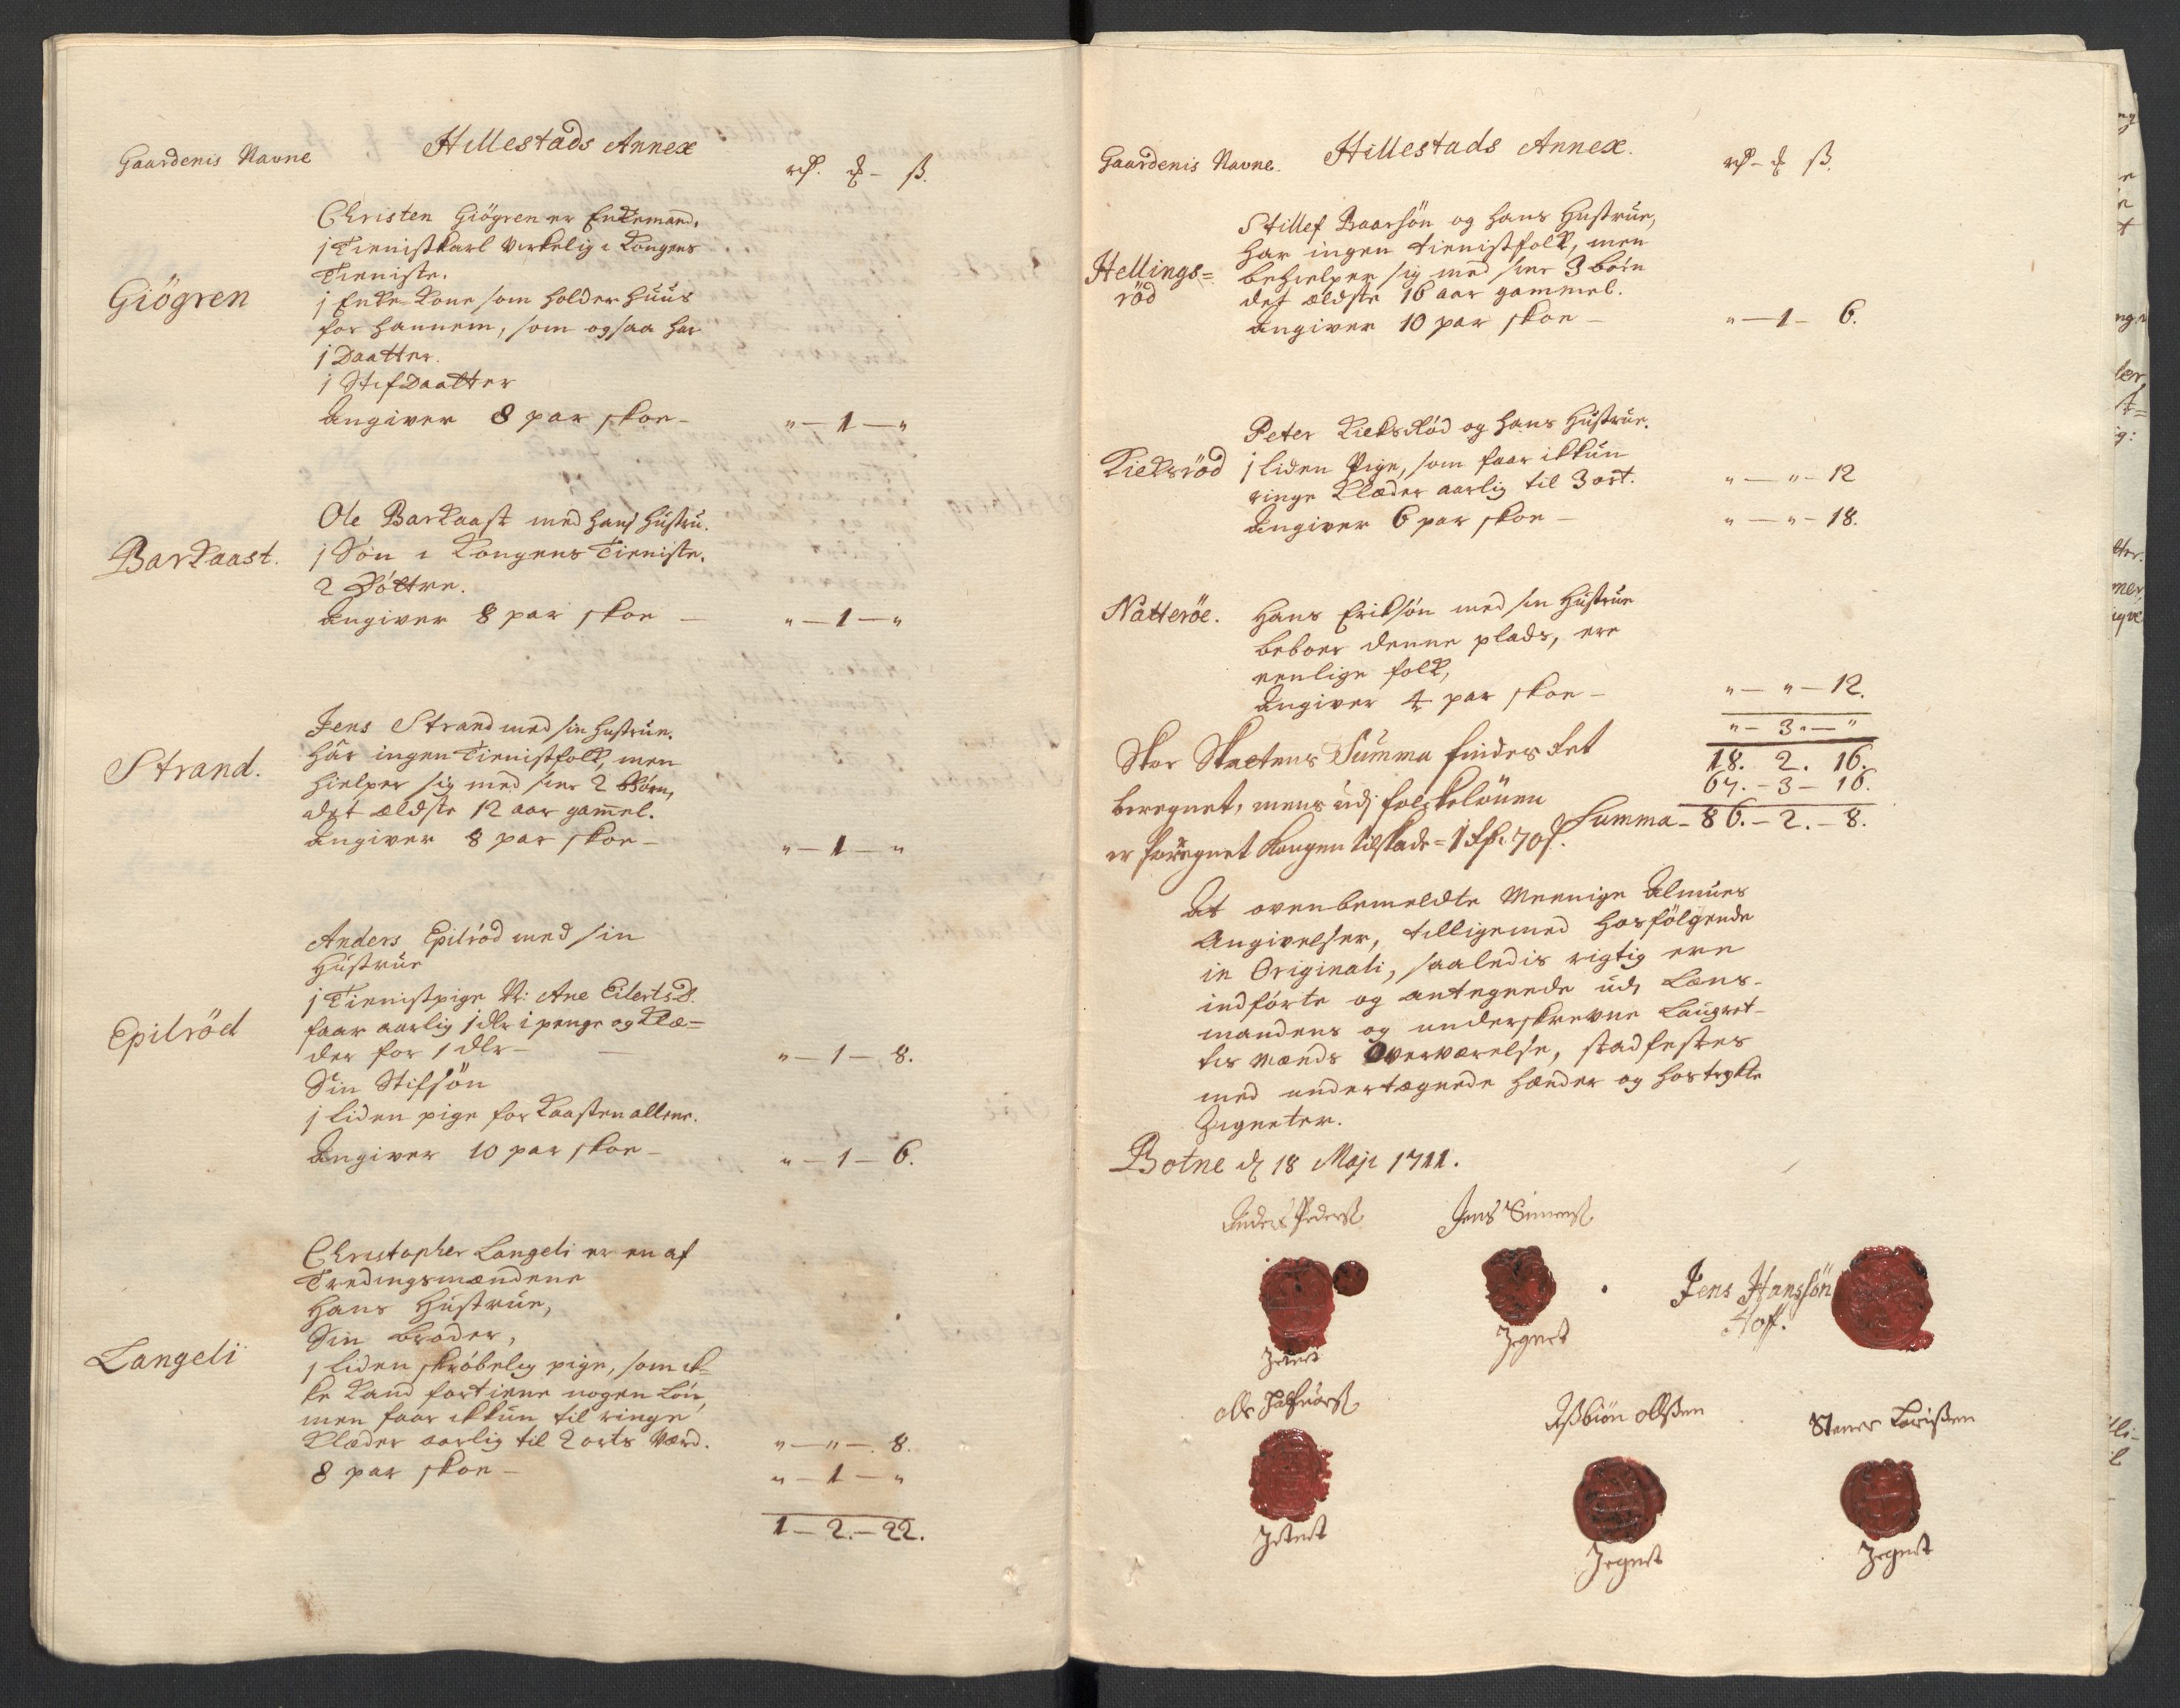 Gaardenis Navne
Hillestads Annex
rd. ort - ß.
Giögren
Christen Giögren er Enkemand.
1 Tienistkarl virkelig i Kongens
Tieniste.
1 Enke-Kone som holder Huus
for hannem, som ogsaa har
1 Daatter.
1 StifDaatter
Angiver 8 par skoe - " - 1 - "
Barkaast.
Ole Barkaast med hans Hustru.
1 Sön i Kongens Tieniste.
2 Döttre.
Angiver 8 par skoe - " - 1 - "
Strand.
Jens Strand med sin Hustrue.
Har ingen Tienistfolk, men
hielper sig med sine 2 Börn,
det ældste 12 aar gam̄el.
Angiver 8 par skoe - " - 1 - "
Epilröd
Anders Epilröd med sin
Hustrue
1 Tienistpige N: Ane EilertsD.
faar aarlig 1 dlr i penge og Klæ=
der for 1 dlr - " - 1 - 8.
Sin Stifsön
1 liden pige for Kaasten allene.
Angiver 10 par skoe - " - 1 - 6.
Langeli
Christopher Langeli er en af
Tredingsmændene
Hans Hustrue,
Sin broder,
1 liden skröbelig pige, som ik=
ke Kand fortiene nogen Lön,
men faar ikkun til ringe
Klæder aarlig til 2 orts Værd. " - " - 8.
8 par skoe - " - 1 - "
1 - 2. - 22.
Gaardenis Navne.
Hillestads Annex.
rd - ort ß.
Hellings=
röd
Stillef Baarsön og hans Hustrue,
Har ingen tienistfolk, men
behielper sig med sine 3 börn
det ældste 16 aar gammel.
Angiver 10 par skoe - " - 1 - 6.
Kieksröd
Peter KieksRöd og hans Hustrue.
1 liden Pige, som faar ikkun
ringe Klæder aarlig til 3 ort. " - " - 12
Angiver 6 par skoe - " - " - 18.
Natteröe.
Hans Eriksön med sin Hustrue
beboer denne plads, ere
eenlige folk,
Angiver 4 par skoe - " - " - 12.
" - 3 - "
Skoe Skattens Summa findes ret 18. 2. 16.
beregnet, mens udj folckelönen 67. - 3 - 16.
Summa - 86. - 2. - 8.
er foregnet Kongen tilskade = 1 dlr. 70 s.
At ovenbemeldte Meenige Almues
Angivelser, tilligemed hosfölgende
in Originali, saaledis rigtig ere
indförte og antegnede udj Læns-
mandens og underskrevne Laugret-
tis Mænds Overværelse, stadfestes
med undertægnede hænder og hostrykte
Zigneter.
Botne d 18 Maji 1711.
Anders Pederß.
Jens Simenß.
Jens Hanssön
Hoff.
Zignet
Zignet
Olle Halfuorß.
Aßbiön Olßen
Stener Larißen
Zignet
Zignet
Zignet